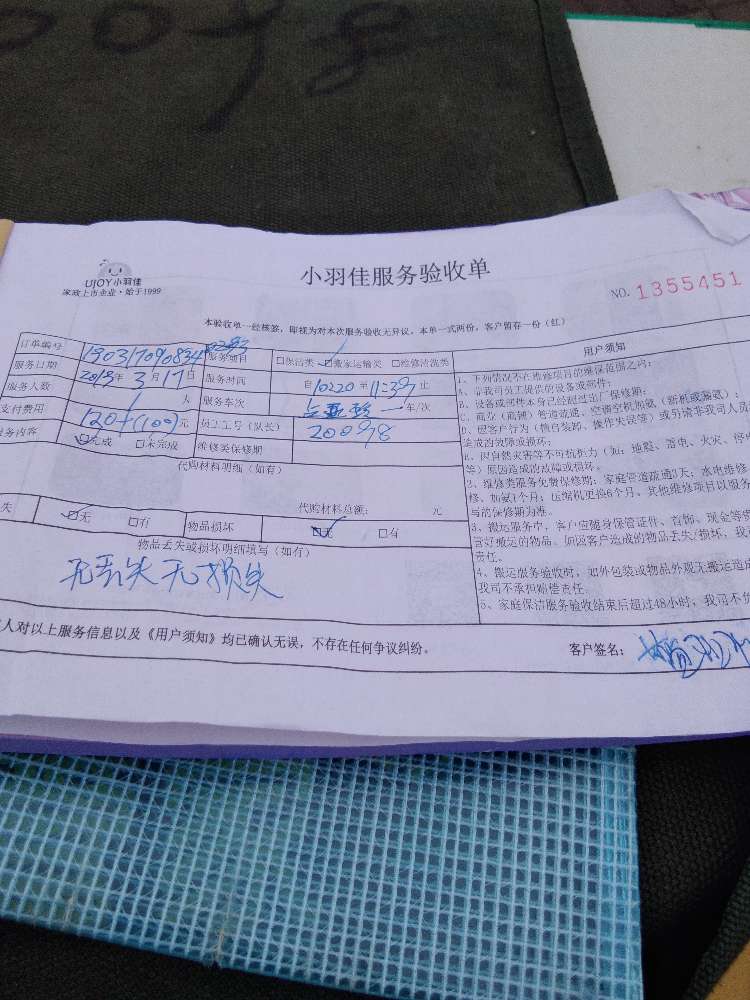 UJOY小羽佳
家政上市企业·始于1999
小羽佳服务验收单
NO. 1355451
本验收单一经核签，即视为对本次服务验收无异议。本单一式两份，客户留存一份（红）
订单编号
服务项目 □保洁类 ☑搬家运输类 □维修清洗类
服务日期 2019年3月17日 服务时间 自10220至11:39止
服务人数 人 服务车次 一 车/次
支付费用 120+(100)元 员工工号（队长） 200978
服务内容 ☑完成 □未完成 维修类保修期
代购材料明细（如有）
代购材料总额： 元
失 ☑无 □有 物品损坏 ☑无 □有
物品丢失或损坏明细填写（如有）
无丢失无损失
人对以上服务信息以及《用户须知》均已确认无误，不存在任何争议纠纷。
客户签名：
用户须知
1、下列情况不在维修项目的维保范围之内：
A、非我司员工提供的设备或部件；
B、设备或部件本身已经超过出厂保修期；
D、因客户行为（擅自装卸、操作失误等）或另请非我司人员
造成的故障或损坏；
E、因自然灾害等不可抗拒力（如：地震、雷电、火灾、
等）原因造成的故障或损坏。
2、维修类服务免费保修期：家庭管道疏通3天；水电维修
修、加氨1个月；压缩机更换6个月、其他维修项目以服务
写的保修期为准。
3、搬运服务中，客户应随身保管证件、首饰、现金等
管好搬运的物品。如因客户造成的物品丢失/损坏，我
责任。
4、搬运服务验收时，如外包装或物品外观无搬运造成
我司不承担赔偿责任
5、家庭保洁服务验收结束后超过48小时，我司不